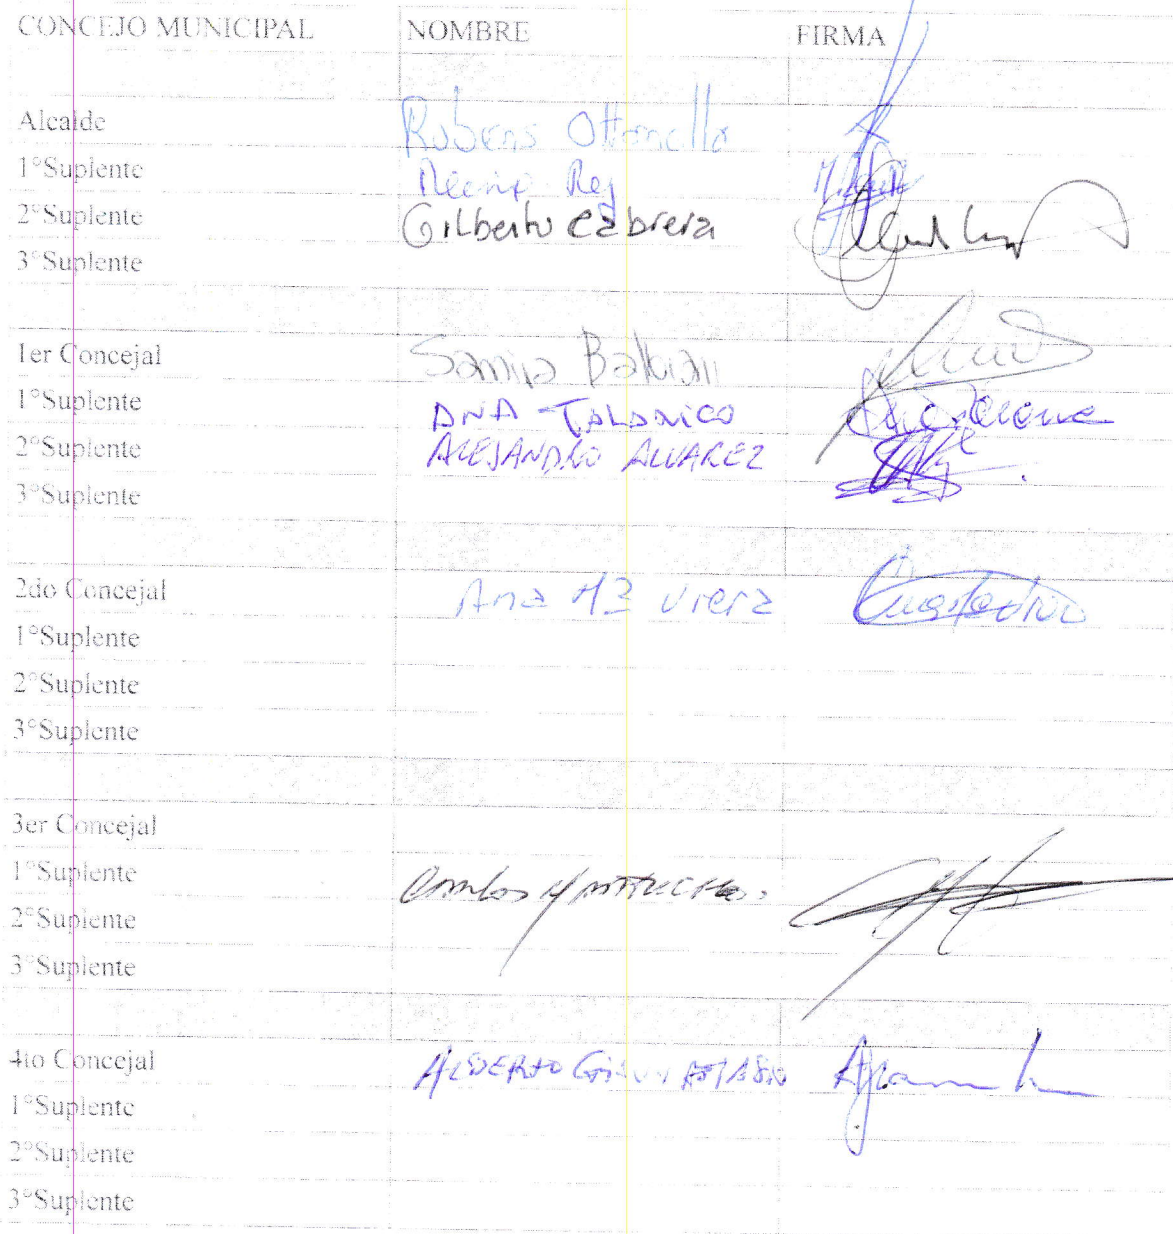 CONCEJO MUNICIPAL NOMBRE FIRMA
Alcalde Rubens Ottonello
1°Suplente Rey
2°Suplente Gilberto Cabrera
3°Suplente
1er Concejal
1°Suplente ANA TALARICO
2°Suplente ALEJANDRO ALVAREZ
3°Suplente
2do Concejal Ana Mª Viera
1°Suplente
2°Suplente
3°Suplente
3er Concejal
1°Suplente
2°Suplente
3°Suplente
4to Concejal ALBERTO
1°Suplente
2°Suplente
3°Suplente